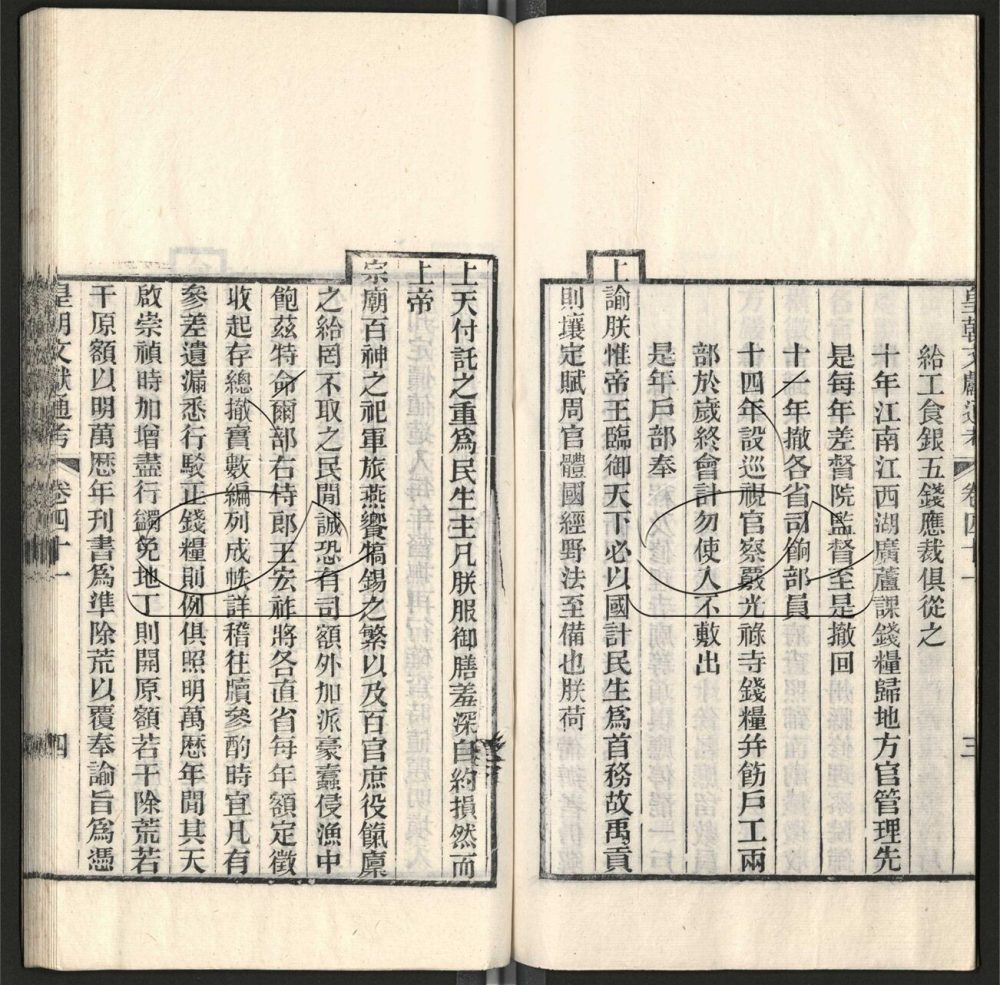 皇朝文獻通考 卷四十一 三
給工食銀五錢應裁俱從之
十年江南江西湖廣蘆課錢糧歸地方官管理先
是每年差督院監督至是撤回
十一年撤各省司餉部員
十四年設巡視官察覈光祿寺錢糧幷飭戶工兩
部於歲終會計勿使入不敷出
是年戶部奉
上諭朕惟帝王臨御天下必以國計民生爲首務故禹貢
則壤定賦周官體國經野法至備也朕荷
上天付託之重爲民生主凡朕服御膳羞深自約損然而
上帝
宗廟百神之祀軍旅燕饗犒錫之繁以及百官庶役餼廩
之給罔不取之民閒誠恐有司額外加派豪蠹侵漁中
飽茲特命爾部右侍郎王宏祚將各直省每年額定徵
收起存總撤實數編列成帙詳稽往牘參酌時宜凡有
參差遺漏悉行駁正錢糧則例俱照明萬歷年閒其天
啟崇禎時加增盡行蠲免地丁則開原額若干除荒若
干原額以明萬歷年刊書爲準除荒以覆奉諭旨爲憑
皇朝文獻通考 卷四十一 四